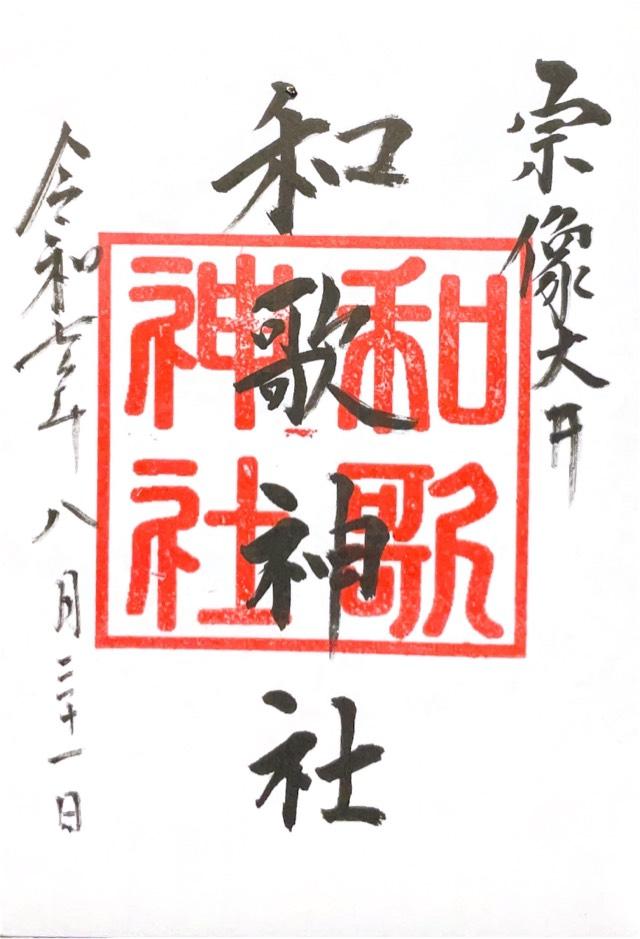 宗像大井
和歌神社
和歌
神社
令和七年八月三十一日